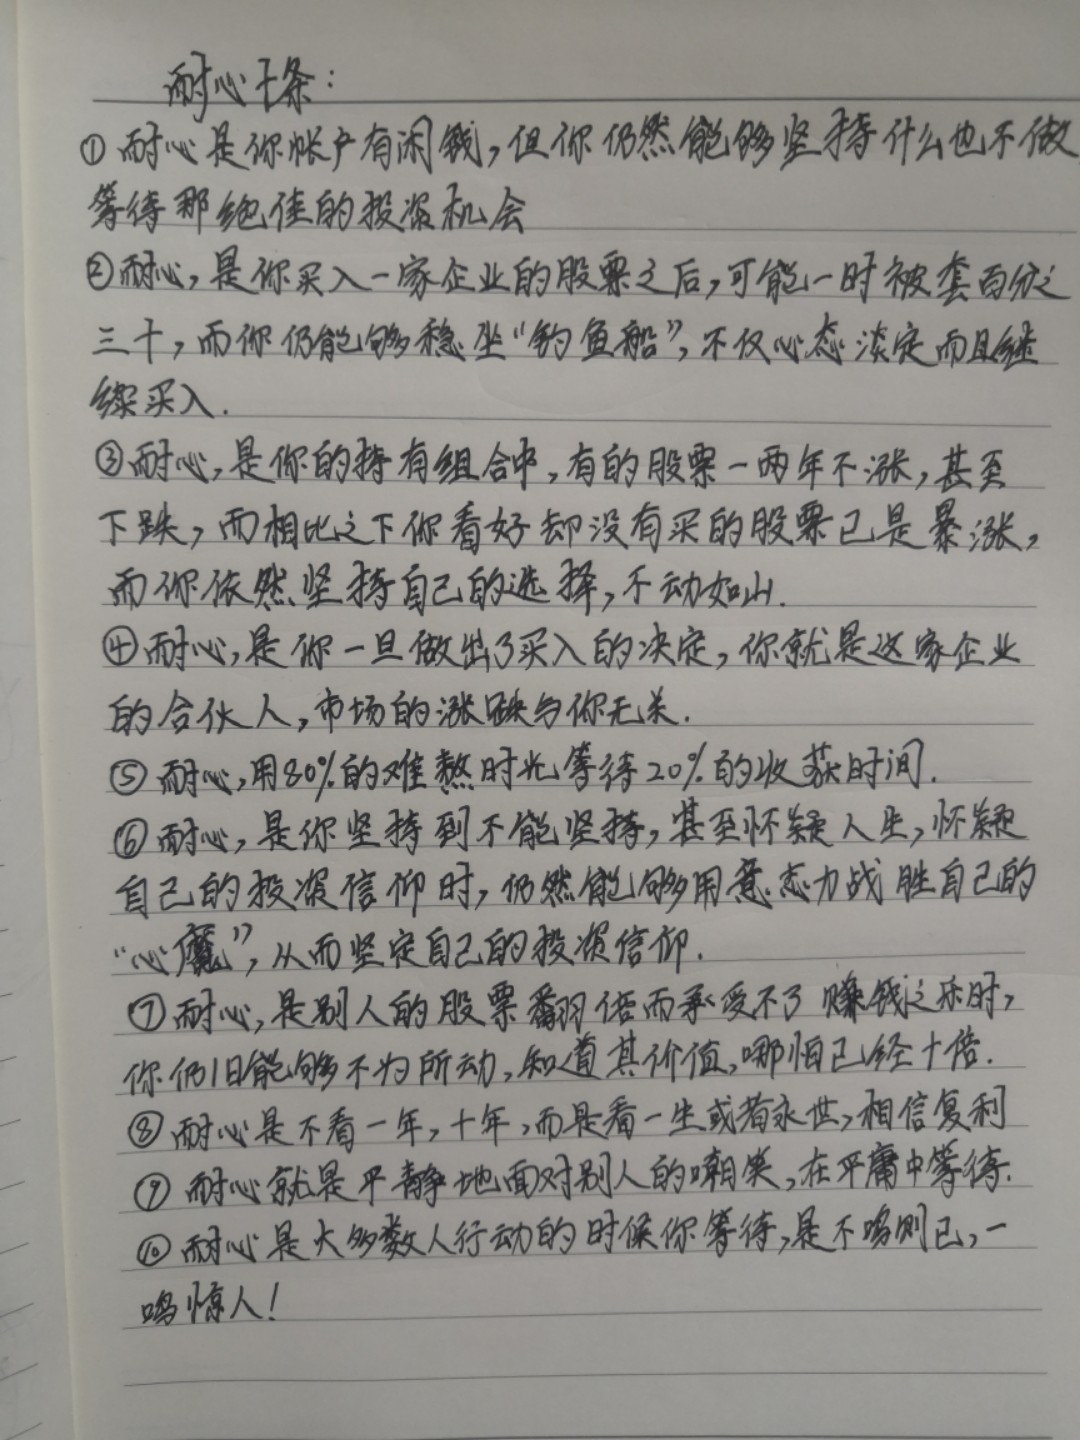 耐心十条：
①耐心是你帐户有闲钱，但你仍然能够坚持什么也不做
等待那绝佳的投资机会
②耐心，是你买入一家企业的股票之后，可能一时被套百分之
三十，而你仍能够稳坐“钓鱼船”，不仅心态淡定而且继
续买入．
③耐心，是你的持有组合中，有的股票一两年不涨，甚至
下跌，而相比之下你看好却没有买的股票已是暴涨，
而你依然坚持自己的选择，不动如山．
④耐心，是你一旦做出了买入的决定，你就是这家企业
的合伙人，市场的涨跌与你无关．
⑤耐心，用80%的难熬时光等待20%的收获时间．
⑥耐心，是你坚持到不能坚持，甚至怀疑人生，怀疑
自己的投资信仰时，仍然能够用意志力战胜自己的
“心魔”，从而坚定自己的投资信仰．
⑦耐心，是别人的股票翻倍而承受不了赚钱之乐时，
你仍旧能够不为所动，知道其价值，哪怕已经十倍．
⑧耐心是不看一年，十年，而是看一生或者永世，相信复利
⑨耐心就是平静地面对别人的嘲笑，在平庸中等待．
⑩耐心是大多数人行动的时候你等待，是不鸣则已，一
鸣惊人！